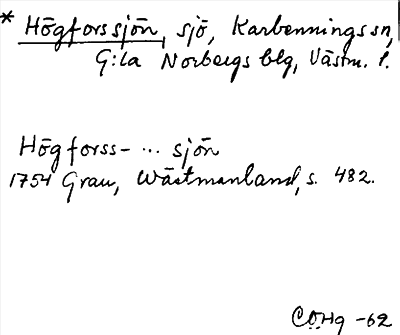 * Högforssjön, sjö, Karbennings sn,
G:la Norbergs blg, Västm. l.
Högforss- ... sjön
1754 Grau, Wästmanland, s. 482.
CÖHg -62